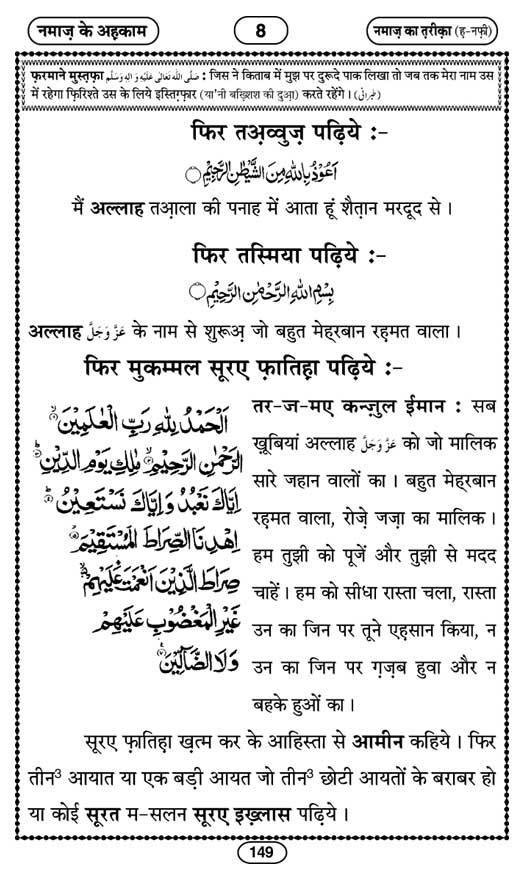 नमाज़ के अह़काम
8
नमाज़ का त़रीक़ा (ह़-नफ़ी)
फ़रमाने मुस्त़फ़ा صَلَّى اللهُ تَعَالٰى عَلَيْهِ وَاٰلِهٖ وَسَلَّم : जिस ने किताब में मुझ पर दुरूदे पाक लिखा तो जब तक मेरा नाम उस
में रहेगा फ़िरिश्ते उस के लिये इस्तिग़्फ़ार (या'नी बख़्शिश की दुआ़) करते रहेंगे। (طبرانی)
फिर तअ़व्वुज़ पढ़िये :-
اَعُوْذُ بِاللّٰهِ مِنَ الشَّيْطٰنِ الرَّجِيْمِ ۝
मैं अल्लाह तआ़ला की पनाह में आता हूं शैत़ान मरदूद से ।
फिर तस्मिया पढ़िये :-
بِسْمِ اللّٰهِ الرَّحْمٰنِ الرَّحِيْمِ ۝
अल्लाह عَزَّوَجَلَّ के नाम से शुरूअ़ जो बहुत मेहरबान रह़मत वाला ।
फिर मुकम्मल सूरए फ़ातिह़ा पढ़िये :-
اَلْحَمْدُ لِلّٰهِ رَبِّ الْعٰلَمِيْنَ ۙ
الرَّحْمٰنِ الرَّحِيْمِ ۙ مٰلِكِ يَوْمِ الدِّيْنِ ؕ
اِيَّاكَ نَعْبُدُ وَاِيَّاكَ نَسْتَعِيْنُ ؕ
اِهْدِنَا الصِّرَاطَ الْمُسْتَقِيْمَ ۙ
صِرَاطَ الَّذِيْنَ اَنْعَمْتَ عَلَيْهِمْ ۙ
غَيْرِ الْمَغْضُوْبِ عَلَيْهِمْ
وَلَا الضَّآلِّيْنَ ۠
तर-ज-मए कन्ज़ुल ईमान : सब
ख़ूबियां अल्लाह عَزَّوَجَلَّ को जो मालिक
सारे जहान वालों का । बहुत मेह़रबान
रह़मत वाला, रोज़े जज़ा का मालिक ।
हम तुझी को पूजें और तुझी से मदद
चाहें । हम को सीधा रास्ता चला, रास्ता
उन का जिन पर तूने एह़सान किया, न
उन का जिन पर ग़ज़ब हुवा और न
बहके हुओं का ।
सूरए फ़ातिह़ा ख़त्म कर के आहिस्ता से आमीन कहिये । फिर
तीन³ आयात या एक बड़ी आयत जो तीन³ छोटी आयतों के बराबर हो
या कोई सूरत म-सलन सूरए इख़्लास पढ़िये ।
149